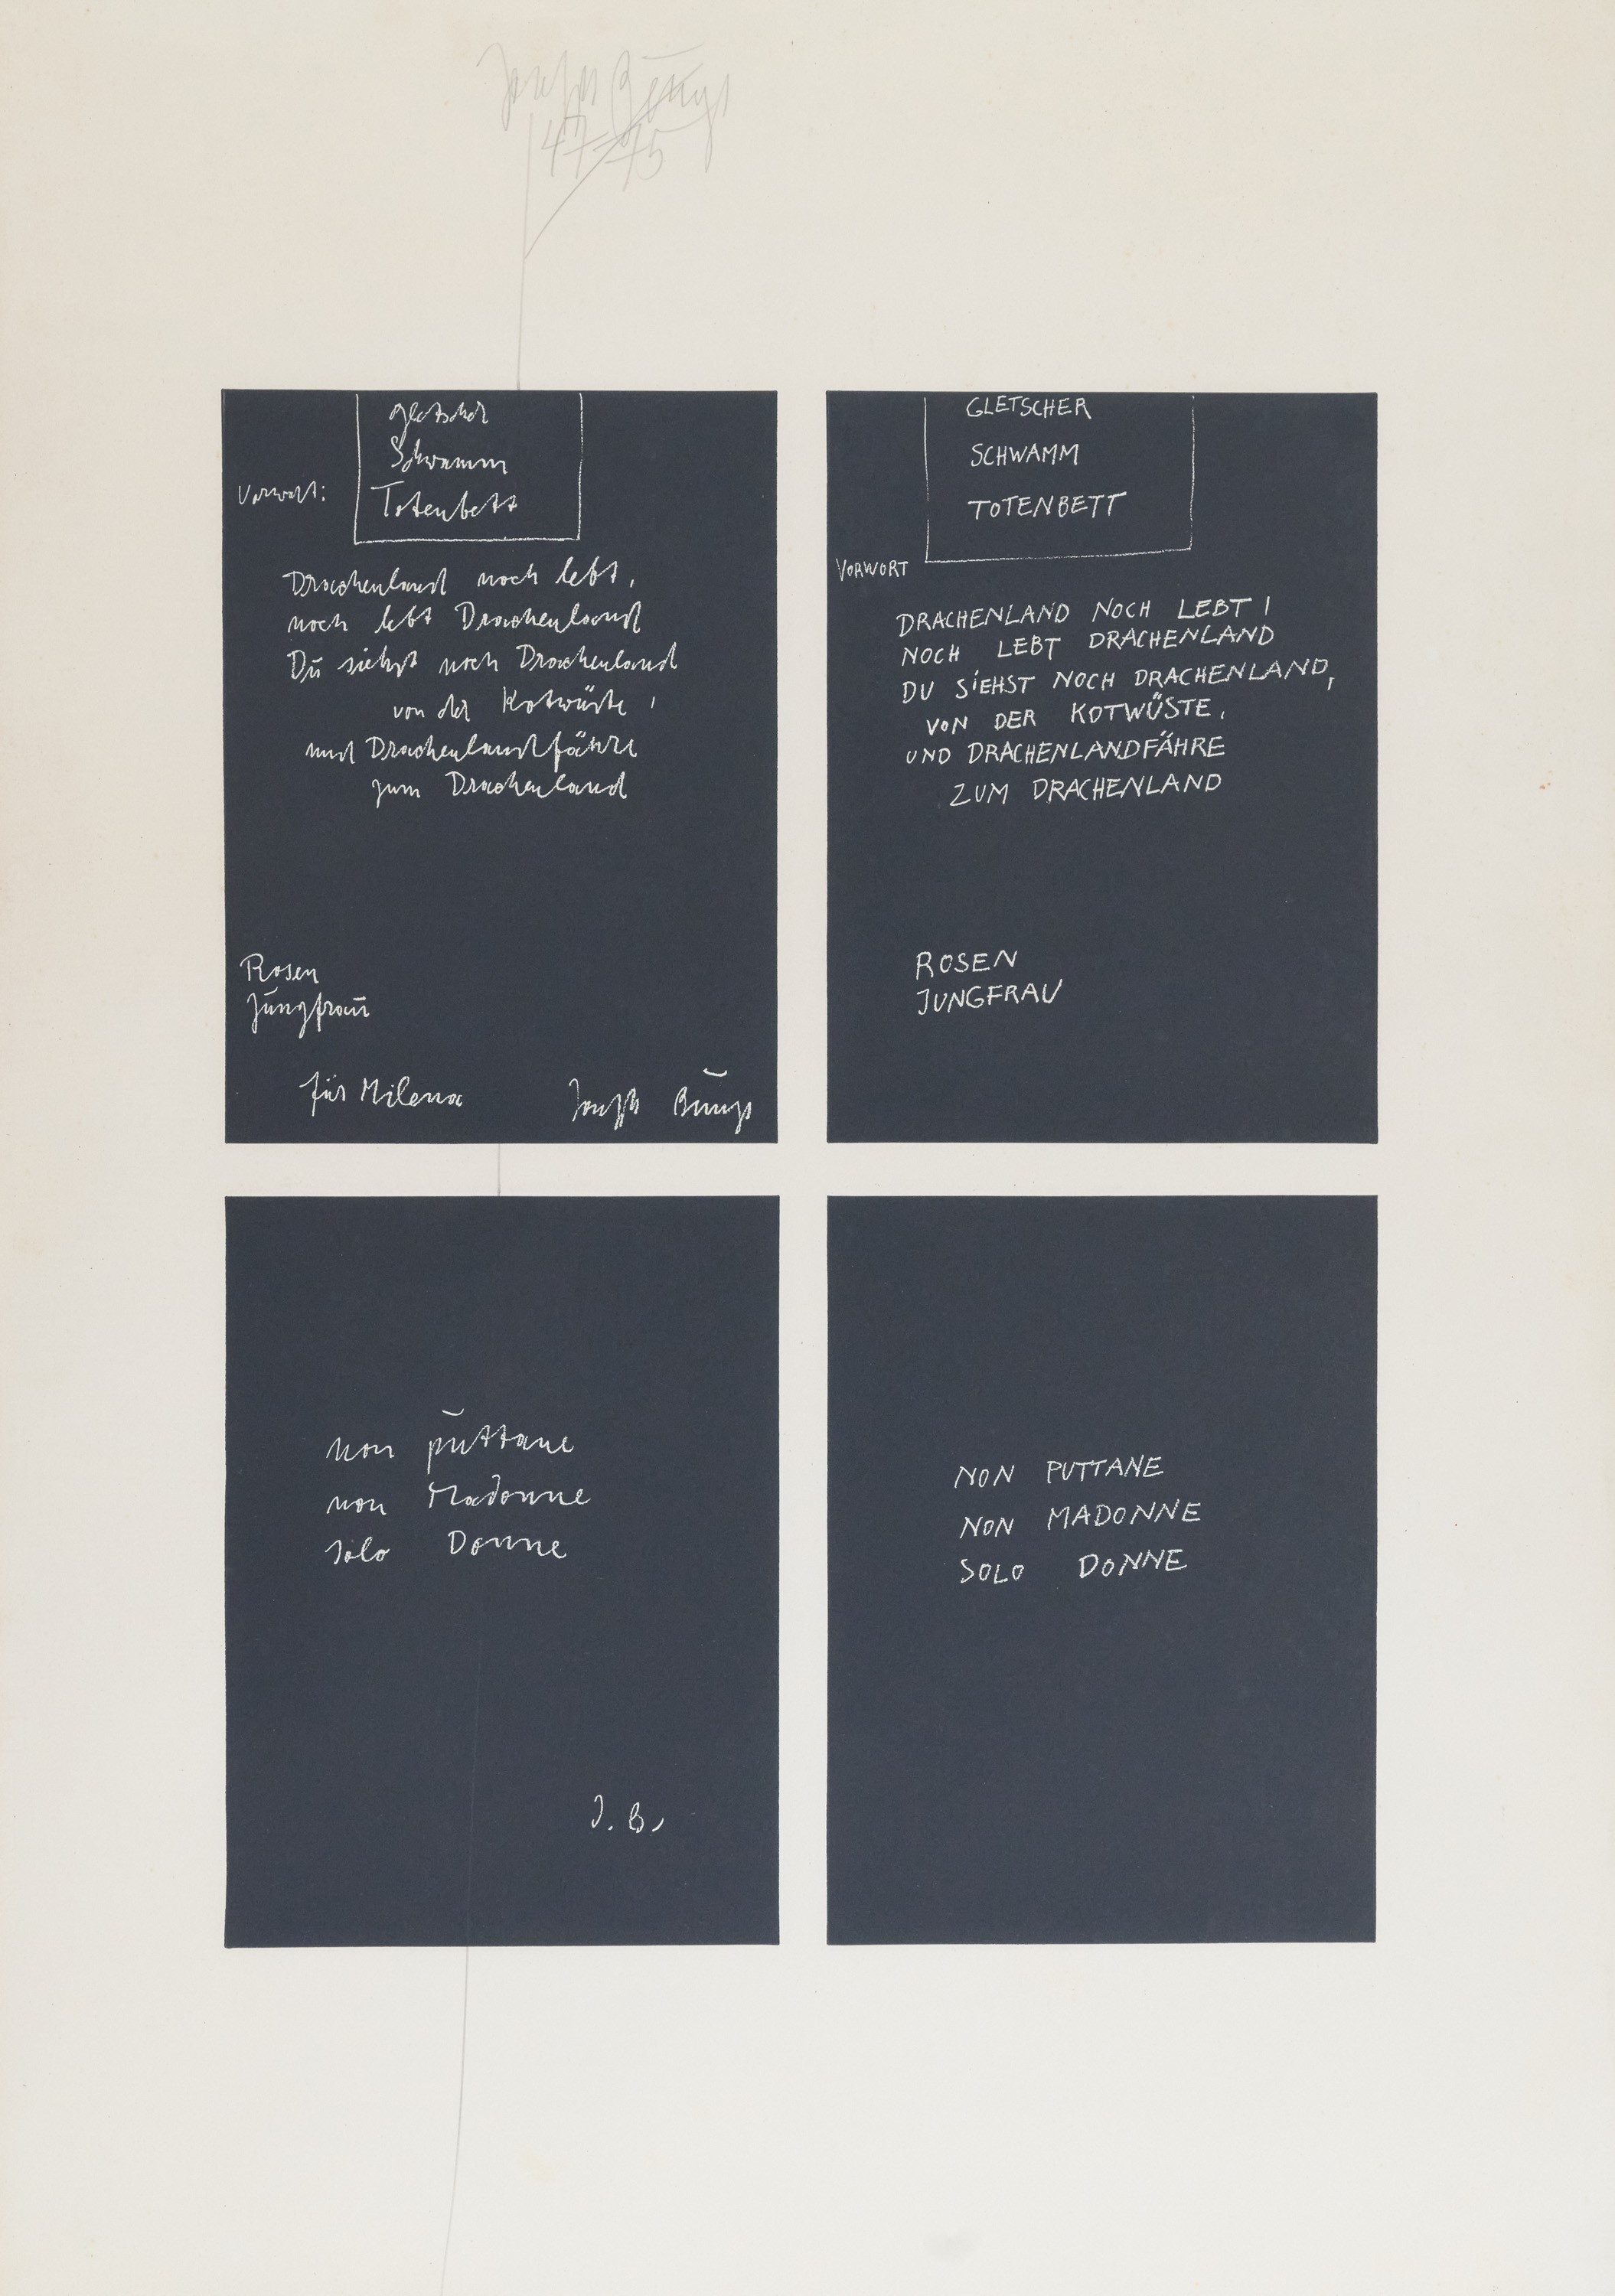 Joseph Beuys
47-75
gletscher
Schwamm
Vorwort:
Totenbett
Drachenland noch lebt,
noch lebt Drachenland
Du siehst noch Drachenland
von der Kotwüste,
und Drachenlandfähre
zum Drachenland
Rosen
Jungfrau
für Milena
Joseph Beuys
GLETSCHER
SCHWAMM
TOTENBETT
VORWORT
DRACHENLAND NOCH LEBT,
NOCH LEBT DRACHENLAND
DU SIEHST NOCH DRACHENLAND,
VON DER KOTWÜSTE,
UND DRACHENLANDFÄHRE
ZUM DRACHENLAND
ROSEN
JUNGFRAU
non puttane
non Madonne
solo Donne
J. B.
NON PUTTANE
NON MADONNE
SOLO DONNE